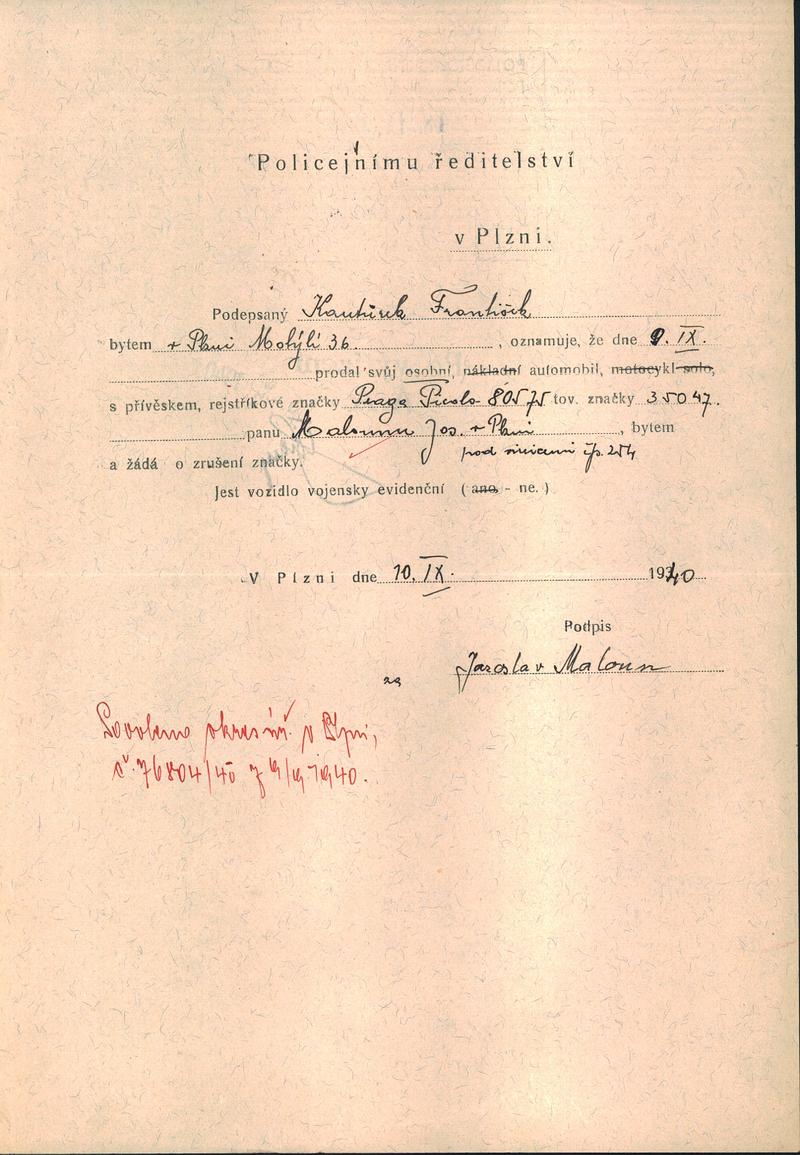 Policejnímu ředitelství
v Plzni.
Podepsaný Kantůrek František
bytem v Plzni Motýlí 36 , oznamuje, že dne 9. IX.
prodal svůj osobní, nákladní automobil, motocykl solo,
s přívěskem, rejstříkové značky Praga Picolo 80575 tov. značky 35047.
panu Malounu Jos. v Plzni , bytem
pod vinicemi čp. 254
a žádá o zrušení značky.
Jest vozidlo vojensky evidenční ( ano - ne. )
V Plzni dne 10. IX. 1940
Podpis
za Jaroslav Maloun
Povoleno okres. v Plzni,
č. 76804/40 z 9/9 1940.